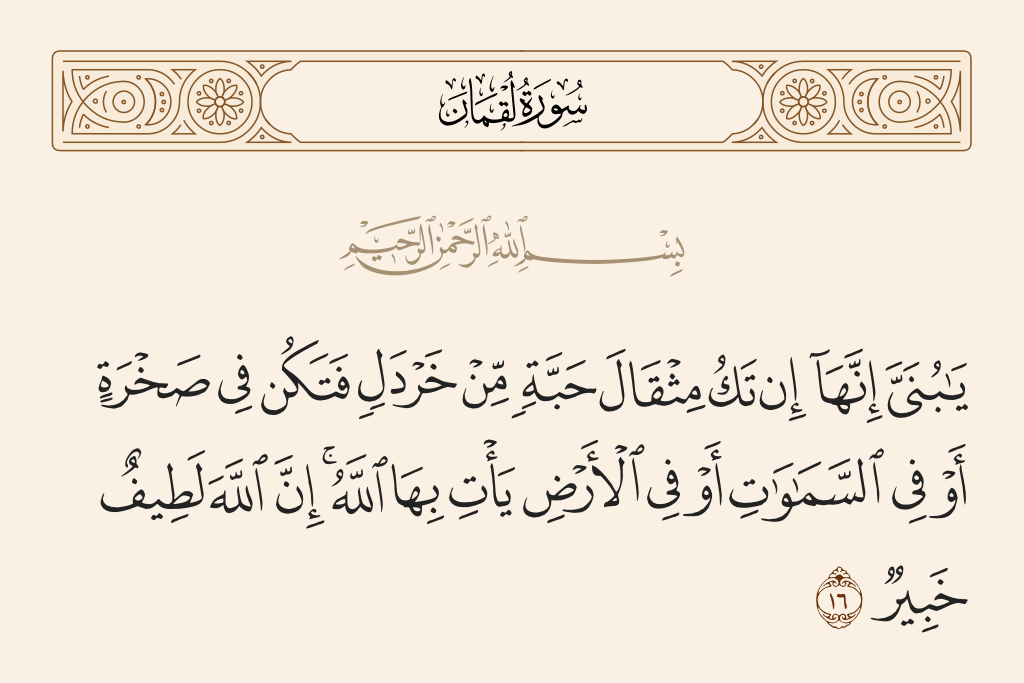 سُورَةُ لُقْمَان
بِسْمِ ٱللَّهِ ٱلرَّحْمَٰنِ ٱلرَّحِيمِ
يَـٰبُنَىَّ إِنَّهَآ إِن تَكُ مِثْقَالَ حَبَّةٍ مِّنْ خَرْدَلٍ فَتَكُن فِى صَخْرَةٍ
أَوْ فِى ٱلسَّمَـٰوَٰتِ أَوْ فِى ٱلْأَرْضِ يَأْتِ بِهَا ٱللَّهُ ۚ إِنَّ ٱللَّهَ لَطِيفٌ
خَبِيرٌ ١٦